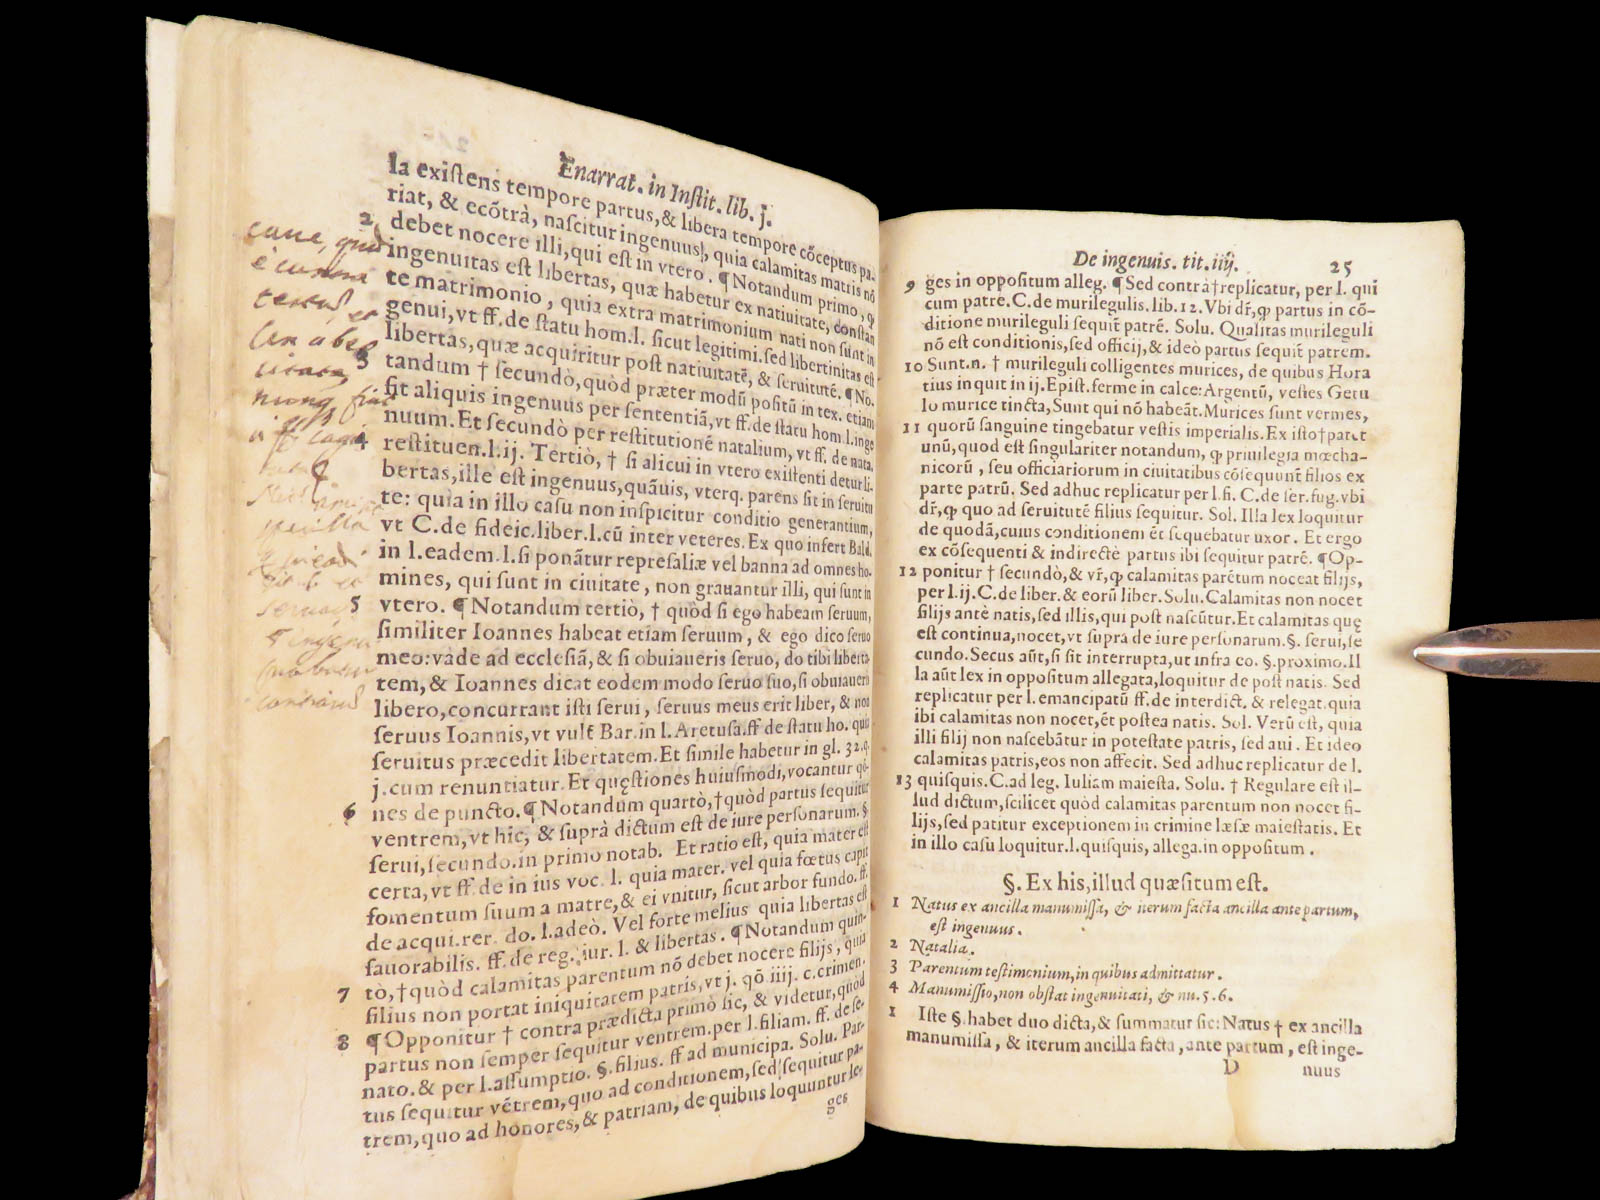 Enarrat. in Instit. lib. j.
la existens tempore partus, & libera tempore cõceptus pa-
riat, & ecõtrà, nascitur ingenuus, quia calamitas matris nõ
debet nocere illi, qui est in vtero. ¶ Notandum primo, ꝙ
ingenuitas est libertas, quæ habetur ex natiuitate, constan
te matrimonio, quia extra matrimonium nati non sunt in
genui, vt ff. de statu hom. l. sicut legitimi. sed libertinitas est
libertas, quæ acquiritur post natiuitatẽ, & seruitutẽ. ¶ No.
tandum † secundò, quòd præter modũ positũ in tex. etiam
fit aliquis ingenuus per sententiã, vt ff. de statu hom. l. inge
nuum. Et secundò per restitutionẽ natalium, vt ff. de nata.
restituen. l. ij. Tertiò, † si alicui in vtero existenti detur li-
bertas, ille est ingenuus, quãuis, vterq. parens sit in seruitu
te: quia in illo casu non inspicitur conditio generantium,
vt C. de fideic. liber. l. cũ inter veteres. Ex quo infert Bald.
in l. eadem. l. si ponãtur represaliæ vel banna ad omnes ho-
mines, qui sunt in ciuitate, non grauantur illi, qui sunt in
vtero. ¶ Notandum tertiò, † quòd si ego habeam seruum,
similiter Ioannes habeat etiam seruum, & ego dico seruo
meo: vade ad ecclesiã, & si obuiaueris seruo, do tibi liberta-
tem, & Ioannes dicat eodem modo seruo suo, si obuiaueris
libero, concurrant isti serui, seruus meus erit liber, & non
seruus Ioannis, vt vult Bar. in l. Aretusa. ff de statu ho. quia
seruitus præcedit libertatem. Et simile habetur in gl. 32. q.
j. cum renuntiatur. Et quęstiones huiusmodi, vocantur qõ-
6 nes de puncto. ¶ Notandum quartò, † quòd partus sequitur
ventrem, vt hic, & suprà dictum est de iure personarum. §.
serui, secundo. in primo notab. Et ratio est, quia mater est
certa, vt ff. de in ius voc. l. quia mater. vel quia fœtus capit
fomentum suum a matre, & ei vnitur, sicut arbor fundo. ff.
de acqui. rer. do. l. adeò. Vel forte melius quia libertas est
fauorabilis. ff. de reg. iur. l. & libertas. ¶ Notandum quin-
7 tò, † quòd calamitas parentum nõ debet nocere filijs, quia
filius non portat iniquitatem patris, vt j. qõ iiij. c. crimen.
8 ¶ Opponitur † contra prædicta primò sic, & videtur, quòd
partus non semper sequitur ventrem. per l. filiam. ff. de se-
nato. & per l. assumptio. §. filius. ff ad municipa. Solu. Par-
tus sequitur vẽtrem, quo ad conditionem, sed sequitur pa-
trem, quo ad honores, & patriam, de quibus loquuntur le-
ges
2
3
4
5
De ingenuis. tit. iiij. 25
9 ges in oppositum alleg. ¶ Sed contrà † replicatur, per l. qui
cum patre. C. de murilegulis. lib. 12. Vbi dr̃, ꝙ partus in cõ-
ditione murileguli sequit̃ patrẽ. Solu. Qualitas murileguli
nõ est conditionis, sed officij, & ideò partus sequit̃ patrem.
10 Sunt. n. † murileguli colligentes murices, de quibus Hora
tius inquit in ij. Epist. ferme in calce: Argentũ, vestes Getu
lo murice tincta, Sunt qui nõ habeãt. Murices sunt vermes,
11 quorũ sanguine tingebatur vestis imperialis. Ex isto † patet
unũ, quod est singulariter notandum, ꝙ priuilegia mœcha-
nicorũ, seu officiariorum in ciuitatibus cõsequunt̃ filios ex
parte patrũ. Sed adhuc replicatur per l. fi. C. de ser. fug. vbi
dr̃, ꝙ quo ad seruitutẽ filius sequitur. Sol. Illa lex loquitur
de quodã, cuius conditionem ẽt sequebatur uxor. Et ergo
ex cõsequenti & indirectè partus ibi sequitur patrẽ. ¶ Op-
12 ponitur † secundò, & vr̃, ꝙ calamitas parẽtum noceat filijs,
per l. ij. C. de liber. & eorũ liber. Solu. Calamitas non nocet
filijs antè natis, sed illis, qui post nascũtur. Et calamitas quę
est continua, nocet, vt supra de iure personarum. §. serui, se
cundo. Secus aũt, si sit interrupta, ut infra eo. §. proximo. Il
la aũt lex in oppositum allegata, loquitur de post natis. Sed
replicatur per l. emancipatũ ff. de interdict, & relegat. quia
ibi calamitas non nocet, ẽt postea natis. Sol. Verũ est, quia
illi filij non nascebãtur in potestate patris, sed aui. Et ideo
calamitas patris, eos non affecit. Sed adhuc replicatur de l.
13 quisquis. C. ad leg. Iuliam maiesta. Solu. † Regulare est il-
lud dictum, scilicet quòd calamitas parentum non nocet fi-
lijs, sed patitur exceptionem in crimine læsæ maiestatis. Et
in illo casu loquitur. l. quisquis, allega. in oppositum.
§. Ex his, illud quæsitum est.
1 Natus ex ancilla manumissa, & iterum facta ancilla ante partum,
est ingenuus.
2 Natalia.
3 Parentum testimonium, in quibus admittatur.
4 Manumissio, non obstat ingenuitati, & nu. 5. 6.
1 Iste §. habet duo dicta, & summatur sic: Natus † ex ancilla
manumissa, & iterum ancilla facta, ante partum, est inge-
D nuus